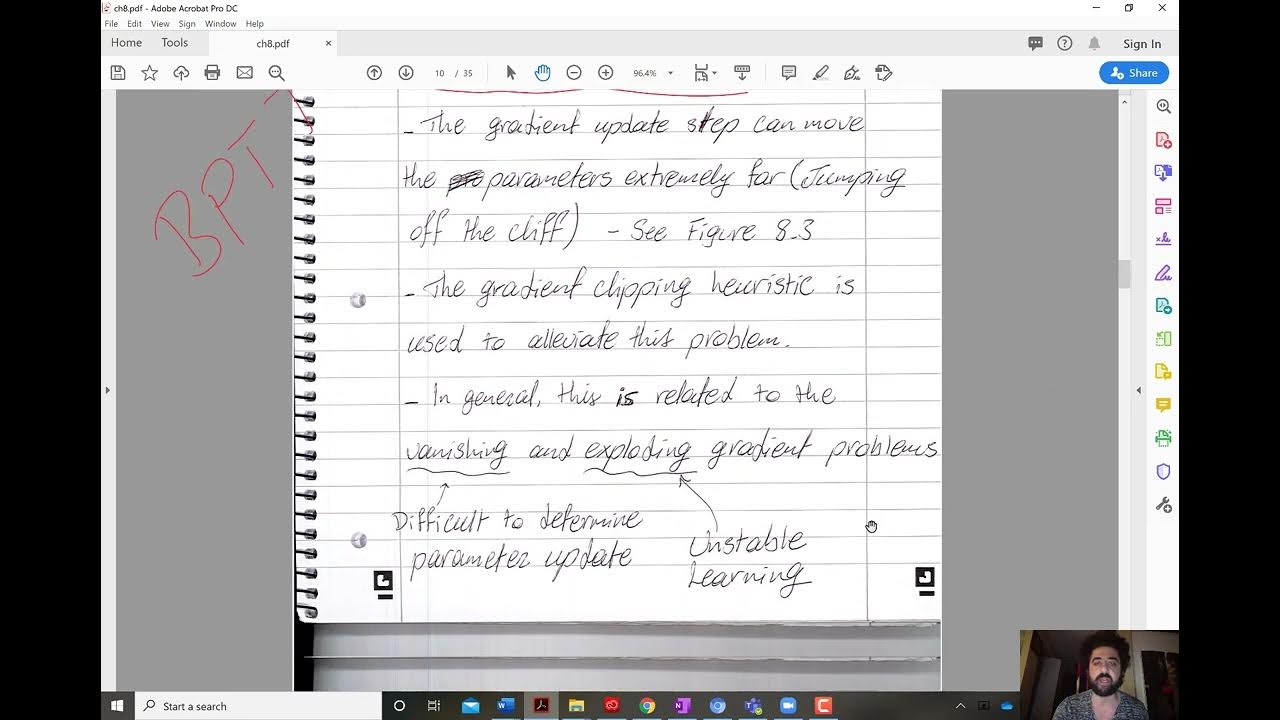 ch8.pdf - Adobe Acrobat Pro DC
File Edit View Sign Window Help
Home Tools ch8.pdf × Sign In
10 / 35 96.4% Share
BPTT
- The gradient update step can move
the parameters extremely far (Jumping
off the cliff) - See Figure 8.3
- The gradient clipping heuristic is
used to alleviate this problem.
- In general, this is related to the
vanishing and exploding gradient problems
Difficult to determine
parameter update
Unstable
Learning
Start a search